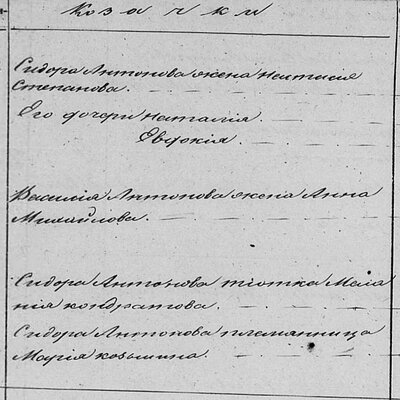 Козачки
Сидора Антонова жена Настасия
Степанова.
Его дочери Наталия.
Евдокия.
Василия Антонова жена Анна
Михайлова.
Сидора Антонова тиотка Мела
ния Кондратова.
Сидора Антонова племянница
Мария Козьмина.